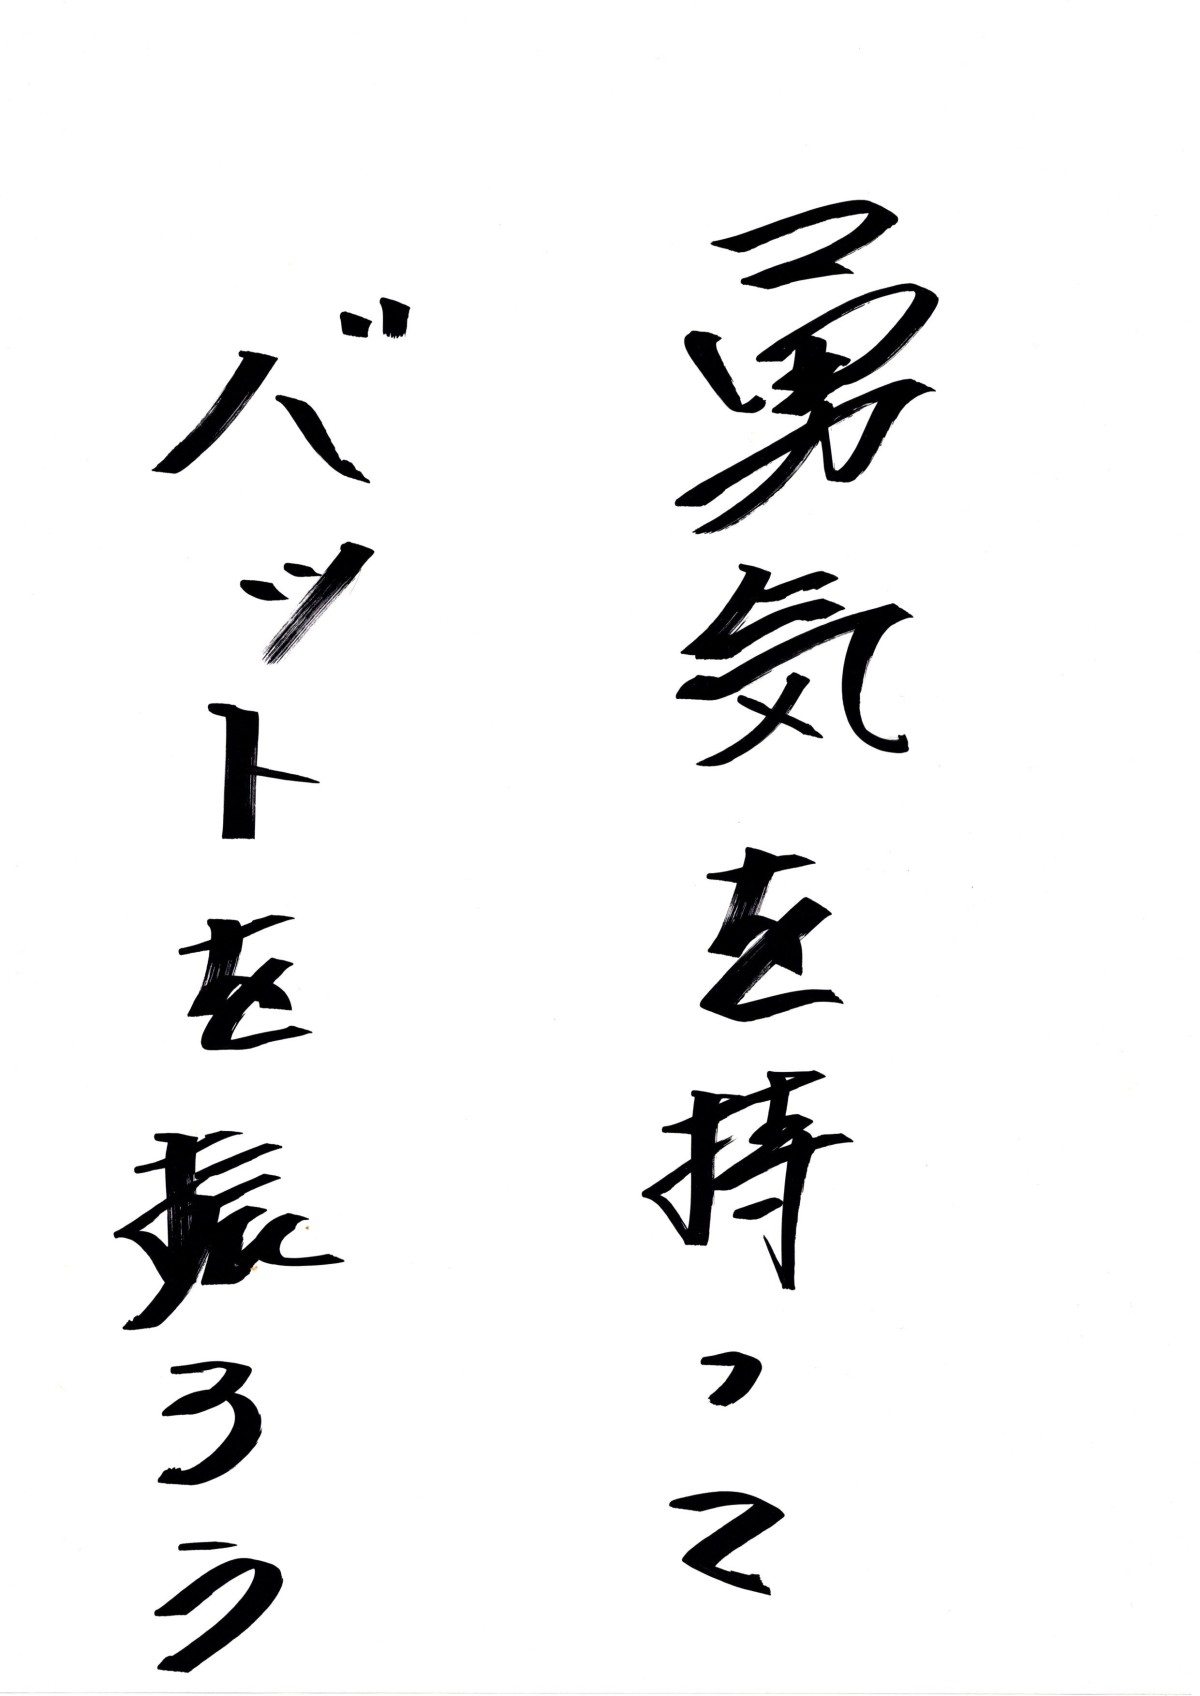 勇気を持って
バットを振ろう